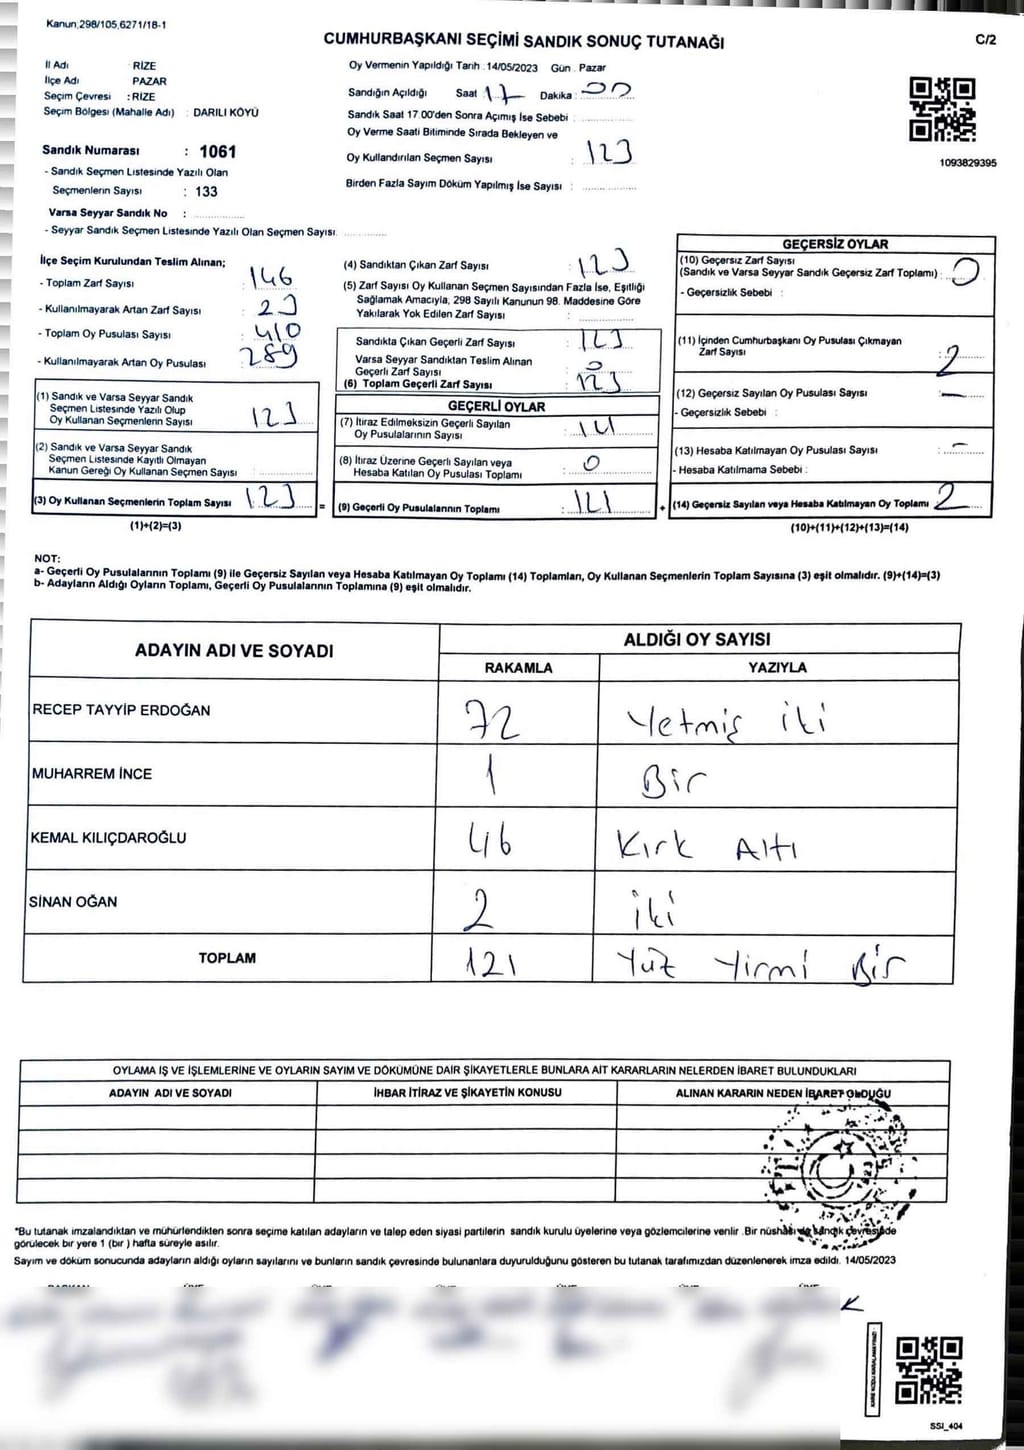 Kanun;298/105,6271/18-1
CUMHURBAŞKANI SEÇİMİ SANDIK SONUÇ TUTANAĞI
C/2
İl Adı : RİZE
İlçe Adı PAZAR
Seçim Çevresi : RİZE
Seçim Bölgesi (Mahalle Adı) : DARILI KÖYÜ
Oy Vermenin Yapıldığı Tarih : 14/05/2023 Gün : Pazar
Sandığın Açıldığı Saat 17 Dakika : 00
Sandık Saat 17.00'den Sonra Açımış İse Sebebi :
Oy Verme Saati Bitiminde Sırada Bekleyen ve
Oy Kullandırılan Seçmen Sayısı : 123
Birden Fazla Sayım Döküm Yapılmış İse Sayısı :
1093829395
Sandık Numarası : 1061
- Sandık Seçmen Listesinde Yazılı Olan
Seçmenlerin Sayısı : 133
Varsa Seyyar Sandık No :
- Seyyar Sandık Seçmen Listesinde Yazılı Olan Seçmen Sayısı:
İlçe Seçim Kurulundan Teslim Alınan;
- Toplam Zarf Sayısı : 146
- Kullanılmayarak Artan Zarf Sayısı : 23
- Toplam Oy Pusulası Sayısı : 410
- Kullanılmayarak Artan Oy Pusulası 289
(1) Sandık ve Varsa Seyyar Sandık
Seçmen Listesinde Yazılı Olup
Oy Kullanan Seçmenlerin Sayısı : 123
(2) Sandık ve Varsa Seyyar Sandık
Seçmen Listesinde Kayıtlı Olmayan
Kanun Gereği Oy Kullanan Seçmen Sayısı :
(3) Oy Kullanan Seçmenlerin Toplam Sayısı : 123 =
(1)+(2)=(3)
(4) Sandıktan Çıkan Zarf Sayısı : 123
(5) Zarf Sayısı Oy Kullanan Seçmen Sayısından Fazla İse, Eşitliği
Sağlamak Amacıyla, 298 Sayılı Kanunun 98. Maddesine Göre
Yakılarak Yok Edilen Zarf Sayısı :
Sandıkta Çıkan Geçerli Zarf Sayısı : 123
Varsa Seyyar Sandıktan Teslim Alınan
Geçerli Zarf Sayısı : 0
(6) Toplam Geçerli Zarf Sayısı : 123
GEÇERLİ OYLAR
(7) İtiraz Edilmeksizin Geçerli Sayılan
Oy Pusulalarının Sayısı : 121
(8) İtiraz Üzerine Geçerli Sayılan veya
Hesaba Katılan Oy Pusulası Toplamı : 0
(9) Geçerli Oy Pusulalarının Toplamı : 121 +
GEÇERSİZ OYLAR
(10) Geçersiz Zarf Sayısı
(Sandık ve Varsa Seyyar Sandık Geçersiz Zarf Toplamı) : 0
- Geçersizlik Sebebi :
(11) İçinden Cumhurbaşkanı Oy Pusulası Çıkmayan
Zarf Sayısı : 2
(12) Geçersiz Sayılan Oy Pusulası Sayısı : —
- Geçersizlik Sebebi :
(13) Hesaba Katılmayan Oy Pusulası Sayısı : -
- Hesaba Katılmama Sebebi :
(14) Geçersiz Sayılan veya Hesaba Katılmayan Oy Toplamı : 2
(10)+(11)+(12)+(13)=(14)
NOT:
a- Geçerli Oy Pusulalarının Toplamı (9) ile Geçersiz Sayılan veya Hesaba Katılmayan Oy Toplamı (14) Toplamları, Oy Kullanan Seçmenlerin Toplam Sayısına (3) eşit olmalıdır. (9)+(14)=(3)
b- Adayların Aldığı Oyların Toplamı, Geçerli Oy Pusulalarının Toplamına (9) eşit olmalıdır.
ADAYIN ADI VE SOYADI ALDIĞI OY SAYISI
RAKAMLA YAZIYLA
RECEP TAYYİP ERDOĞAN 72 Yetmiş iki
MUHARREM İNCE 1 Bir
KEMAL KILIÇDAROĞLU 46 Kırk Altı
SİNAN OĞAN 2 iki
TOPLAM 121 Yüz Yirmi Bir
OYLAMA İŞ VE İŞLEMLERİNE VE OYLARIN SAYIM VE DÖKÜMÜNE DAİR ŞİKAYETLERLE BUNLARA AİT KARARLARIN NELERDEN İBARET BULUNDUKLARI
ADAYIN ADI VE SOYADI İHBAR İTİRAZ VE ŞİKAYETİN KONUSU ALINAN KARARIN NEDEN İBARET OLDUĞU
*Bu tutanak imzalandıktan ve mühürlendikten sonra seçime katılan adayların ve talep eden siyasi partilerin sandık kurulu üyelerine veya gözlemcilerine verilir .Bir nüshası da sandık çevresinde
görülecek bir yere 1 (bir ) hafta süreyle asılır.
Sayım ve döküm sonucunda adayların aldığı oyların sayılarını ve bunların sandık çevresinde bulunanlara duyurulduğunu gösteren bu tutanak tarafımızdan düzenlenerek imza edildi. 14/05/2023
SSI_404